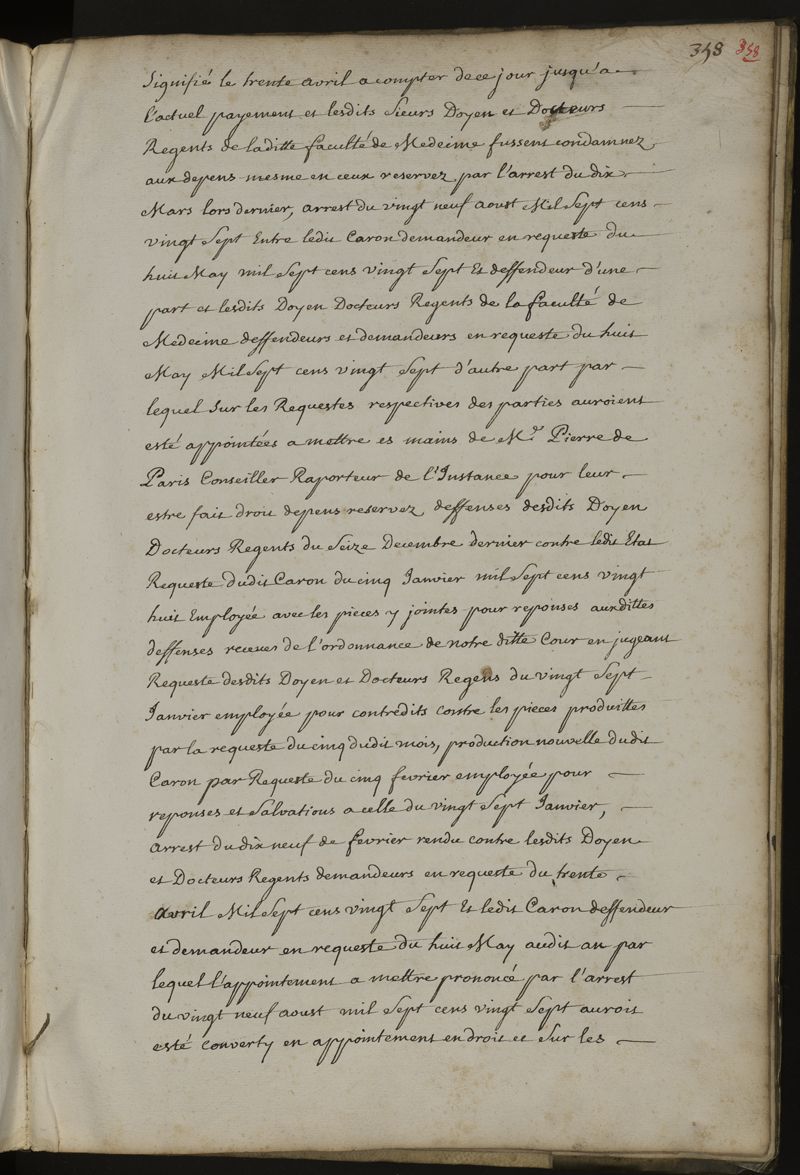 348 348
Signifié le trente avril a compter de ce jour jusqu'a
l'actuel payement et lesdits Sieurs Doyen et Docteurs
Regents de laditte faculté de Medecine fussent condamnez
aux depens mesme en ceux reservez par l'arrest du dix
Mars lors dernier, arrest du vingt neuf aoust Mil Sept cens
vingt Sept Entre ledit Caron demandeur en requeste du
huit May mil Sept cens vingt Sept Et deffendeur d'une
part et lesdits Doyen Docteurs Regents de la faculté de
Medecine deffendeurs et demandeurs en requeste du huit
May Mil Sept cens vingt Sept d'autre part par
lequel Sur les Requestes respectives des parties auroient
esté appointées a mettre es mains de Mr. Pierre de
Paris Conseiller Raporteur de l'Instance pour leur
estre fait droit depens reservez, deffenses desdits Doyen
Docteurs Regents du Seize Decembre dernier contre ledit Etat
Requeste dudit Caron du cinq Janvier mil Sept cens vingt
huit Employée avec les pieces y jointes pour reponses auxdittes
deffenses receues de l'ordonnance de notre ditte Cour en jugeant
Requeste desdits Doyen et Docteurs Regens du vingt Sept
Janvier employée pour contredits contre les pieces produittes
par la requeste du cinq dudit mois, production nouvelle dudit
Caron par Requeste du cinq fevrier employée pour
reponses et Salvations a celle du vingt Sept Janvier,
arrest du dix neuf de fevrier rendu contre lesdits Doyen
et Docteurs Regents demandeurs en requeste du trente
avril Mil Sept cens vingt Sept Et ledit Caron deffendeur
et demandeur en requeste du huit May audit an par
lequel l'appointement a mettre prononcé par l'arrest
du vingt neuf aoust mil Sept cens vingt Sept auroit
esté converty en appointement en droit et Sur les